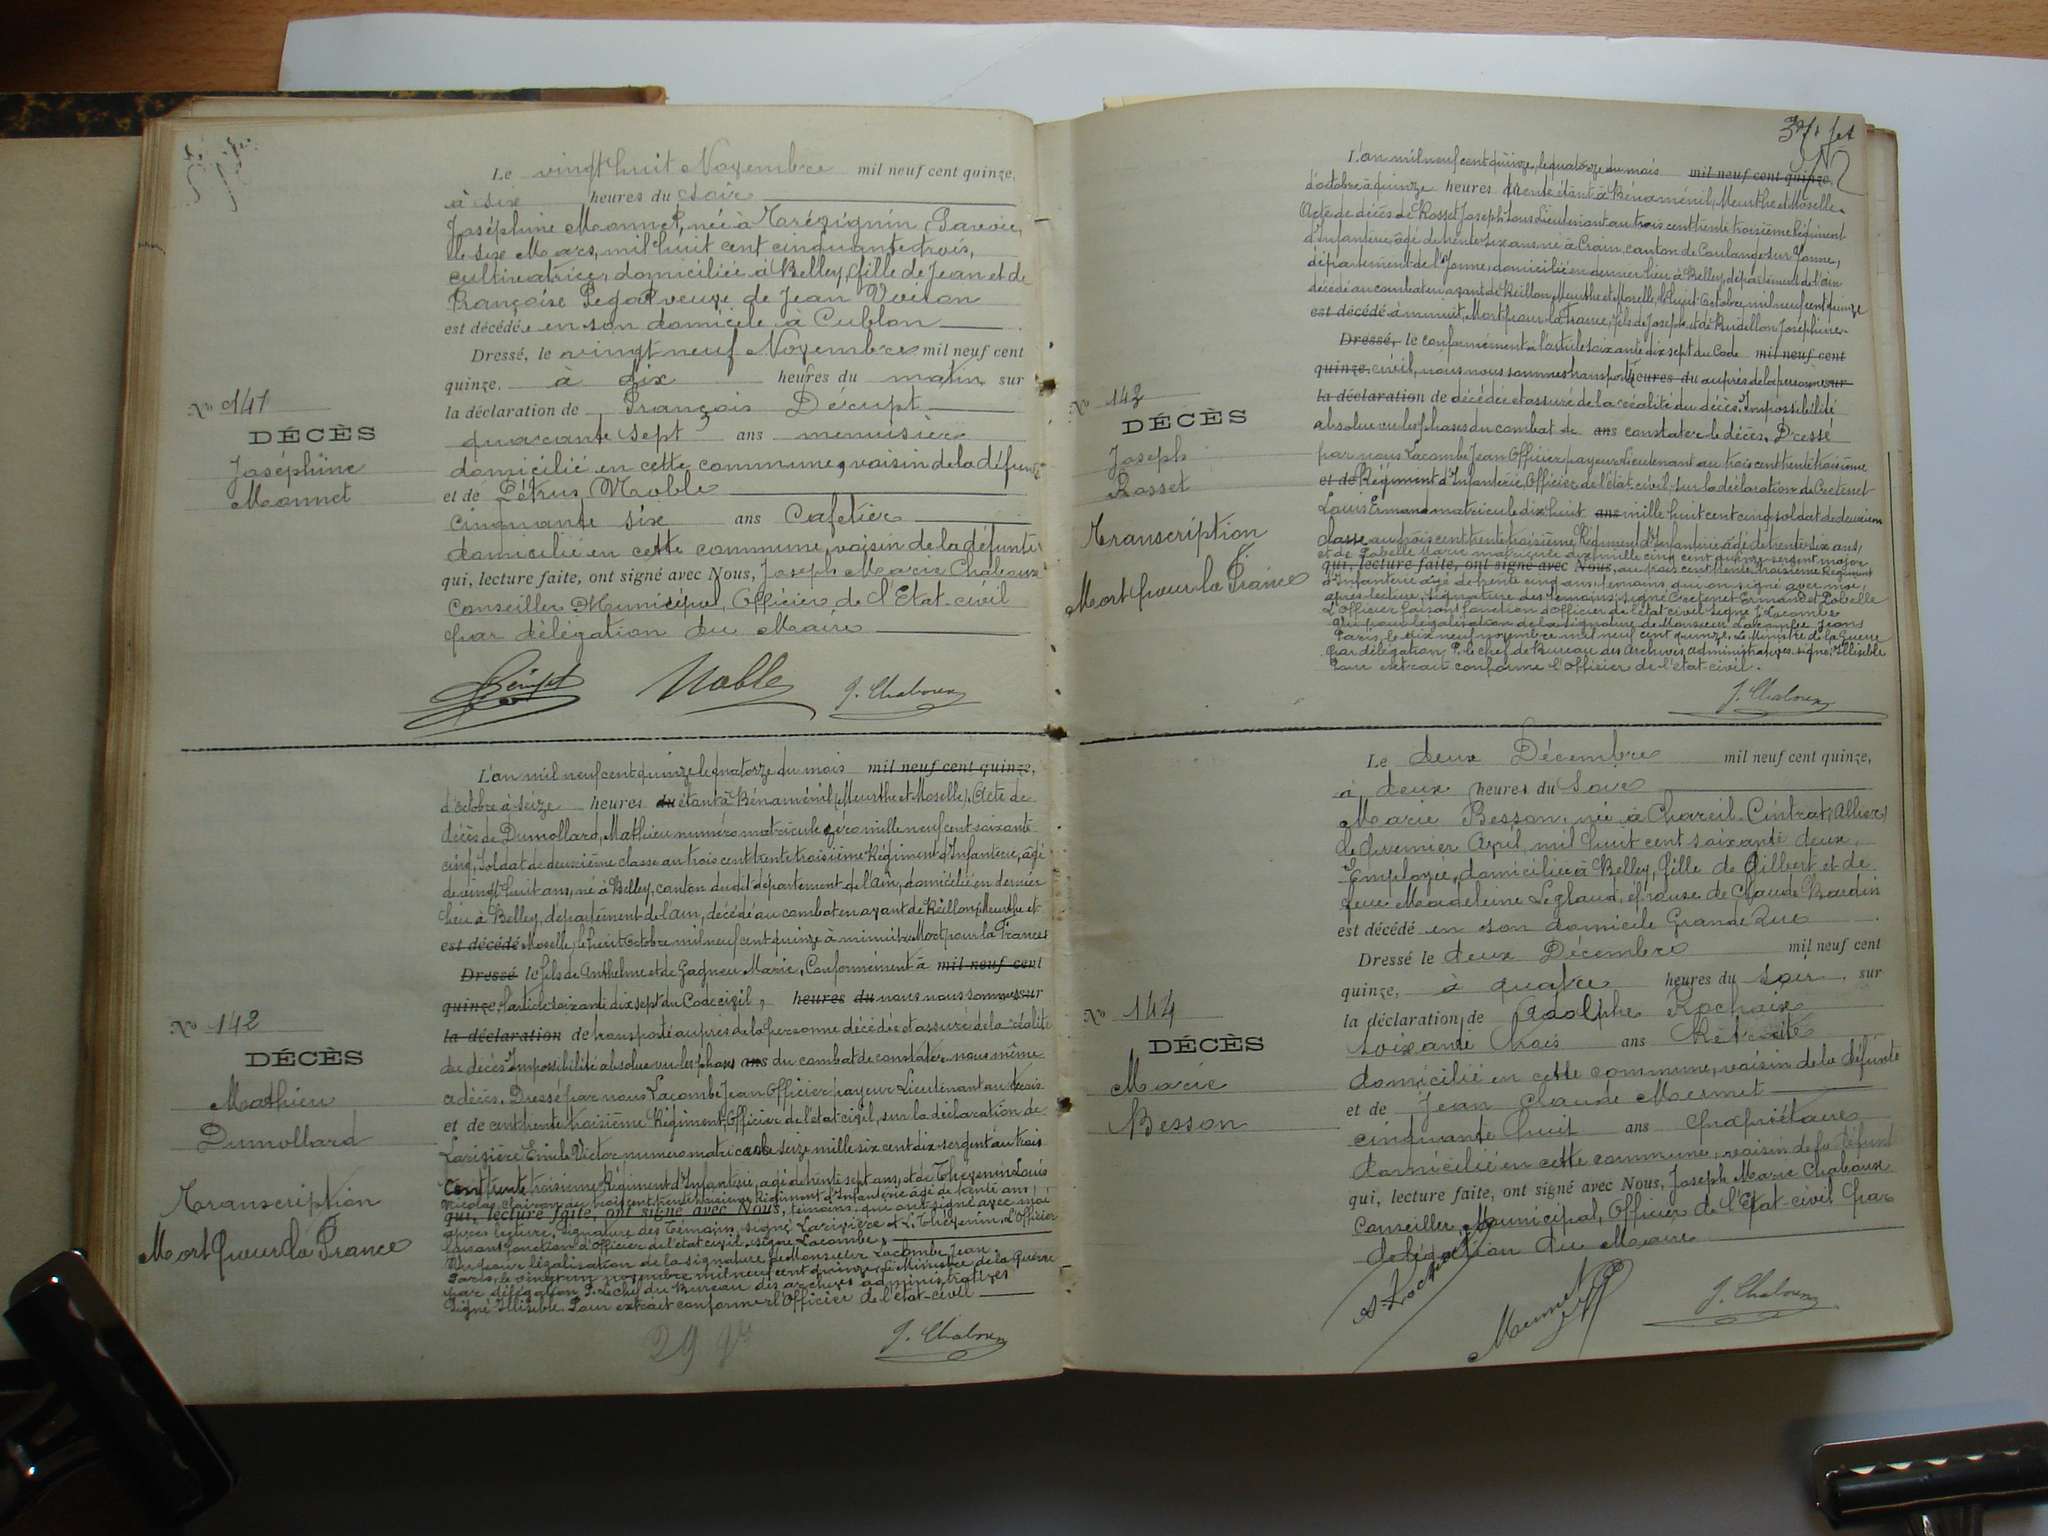 Le vingt huit Novembre mil neuf cent quinze,
à six heures du soir
Joséphine Monnet, née à Trézignin, Savoie,
le six Mars, mil huit cent cinquante trois,
cultivatrice, domiciliée à Belley, fille de Jean et de
Françoise Pegaz veuve de Jean Voiron
est décédée en son domicile à Cublon
Dressé, le vingt neuf Novembre mil neuf cent
quinze. à dix heures du matin sur
la déclaration de François Décript
quarante sept ans menuisier
domicilié en cette commune, voisin de la défunte
et de Pétrus Noble
cinquante six ans Cafetier
domicilié en cette commune, voisin de la défunte
qui, lecture faite, ont signé avec Nous, Joseph Marie Chaboux
Conseiller Municipal, Officier de l'Etat-civil
par délégation du Maire
Noble J. Chaboux
No 141
DÉCÈS
Joséphine
Monnet
L'an mil neuf cent quinze le quatorze du mois mil neuf cent quinze,
d'octobre à seize heures du étant à Bénaménil (Meurthe et Moselle). Acte de
décès de Dumollard, Mathieu numéro matricule zéro mille neuf cent soixante
cinq, soldat de deuxième classe au trois cent trente troisième Régiment d'Infanterie, âgé
de vingt huit ans, né à Belley, canton du dit département de l'Ain, domicilié en dernier
lieu à Belley, département de l'Ain, décédé au combat en avant de Reillon, Meurthe et
est décédé Moselle, le huit Octobre mil neuf cent quinze à minuit, Mort pour la France,
Dressé le fils de Anthelme et de Gagneu Marie, Conformément à mil neuf cent
quinze, l'article soixante dix sept du Code civil, heures du nous nous sommes sur
la déclaration de transporté auprès de la personne décédée et assuré de la réalité
du décès. Impossibilité absolue vu les phases ans du combat de constater nous même
ce décès. Dressé par nous Lacombe Jean Officier payeur Lieutenant au trois
et de cent trente troisième Régiment, Officier de l'état civil, sur la déclaration de
Larivière Emile Victor numéro matricule seize mille six cent dix sergent au trois
cent trente troisième Régiment d'Infanterie, âgé de trente sept ans, et de Thévenin Louis
Nicolas, clairon au trois cent trente troisième Régiment d'Infanterie âgé de trente ans,
qui, lecture faite, ont signé avec Nous, témoins qui ont signé avec moi
après lecture. Signature des Témoins, signé Larivière et L. Thévenin. L'Officier
faisant fonction d'Officier de l'état civil signé Lacombe,
Vu pour légalisation de la signature de Monsieur Lacombe Jean.
Paris, le vingt un novembre mil neuf cent quinze, Le Ministre de la Guerre
par délégation P. Le chef du Bureau des archives administratives
Signé Illisible. Pour extrait conforme l'Officier de l'état-civil
J. Chaboux
No 142
DÉCÈS
Mathieu
Dumollard
Transcription
Mort pour la France
L'an mil neuf cent quinze, le quatorze du mois mil neuf cent quinze,
d'octobre à quinze heures trente étant à Bénaménil, Meurthe et Moselle.
Acte de décès de Rosset Joseph Louis Lieutenant au trois cent trente troisième Régiment
d'Infanterie, âgé de trente six ans né à Crain, canton de Coulange-sur Yonne,
département de l'Yonne, domicilié en dernier lieu à Belley, département de l'Ain
décédé au combat en avant de Reillon, Meurthe et Moselle, le huit Octobre mil neuf cent quinze
est décédé à minuit, Mort pour la France, fils de Joseph et de Budillon Joséphine.
Dressé, le conformément à l'article soixante dix sept du Code mil neuf cent
quinze, civil, nous nous sommes transporté heures du auprès de la personne sur
la déclaration de décédée et assuré de la réalité du décès. Impossibilité
absolue vu les phases du combat de ans constater le décès. Dressé
par nous Lacombe Jean Officier payeur Lieutenant au trois cent trente troisième
et de Régiment d'Infanterie, Officier de l'état civil, sur la déclaration de Cretenet
Louis Ermand matricule dix huit ans mille huit cent cinq soldat de deuxième
classe au trois cent trente troisième Régiment d'Infanterie âgé de trente six ans,
et de Labelle Marie matricule dix mille cinq cent quinze sergent major
qui, lecture faite, ont signé avec Nous, au trois cent trente troisième Régiment
d'Infanterie âgé de trente cinq ans, témoins, qui on signé avec moi,
après lecture, signature des témoins, signé Cretenet Ermand et Labelle
L'Officier faisant fonction d'Officier de l'état civil signé J. Lacombe
Vu pour légalisation de la signature de Monsieur Lacombe Jean
Paris, le dix neuf novembre mil neuf cent quinze, Le Ministre de la Guerre
par délégation, P. le chef de Bureau des Archives administratives signé: Illisible
Pour extrait conforme l'Officier de l'état civil.
J. Chaboux
DÉCÈS
Joseph
Rosset
Transcription
Mort pour la France
Le deux Décembre mil neuf cent quinze,
à deux heures du soir
Marie Besson, née à Chareil-Cintrat, (Allier)
le premier Avril, mil huit cent soixante deux,
Employée, domiciliée à Belley, fille de Gilbert et de
feue Madeleine Leglaud, épouse de Claude Bardin
est décédé en son domicile Grande Rue
Dressé le deux Décembre mil neuf cent
quinze, à quatre heures du soir sur
la déclaration de Adolphe Rochaix
soixante trois ans Retraité
domicilié en cette commune, voisin de la défunte
et de Jean Claude Mermet
cinquante huit ans Propriétaire
domicilié en cette commune, voisin de la défunte
qui, lecture faite, ont signé avec Nous, Joseph Marie Chaboux
Conseiller, Municipal, Officier de l'Etat-civil par
délégation du Maire
Mermet J. Chaboux
No 144
DÉCÈS
Marie
Besson